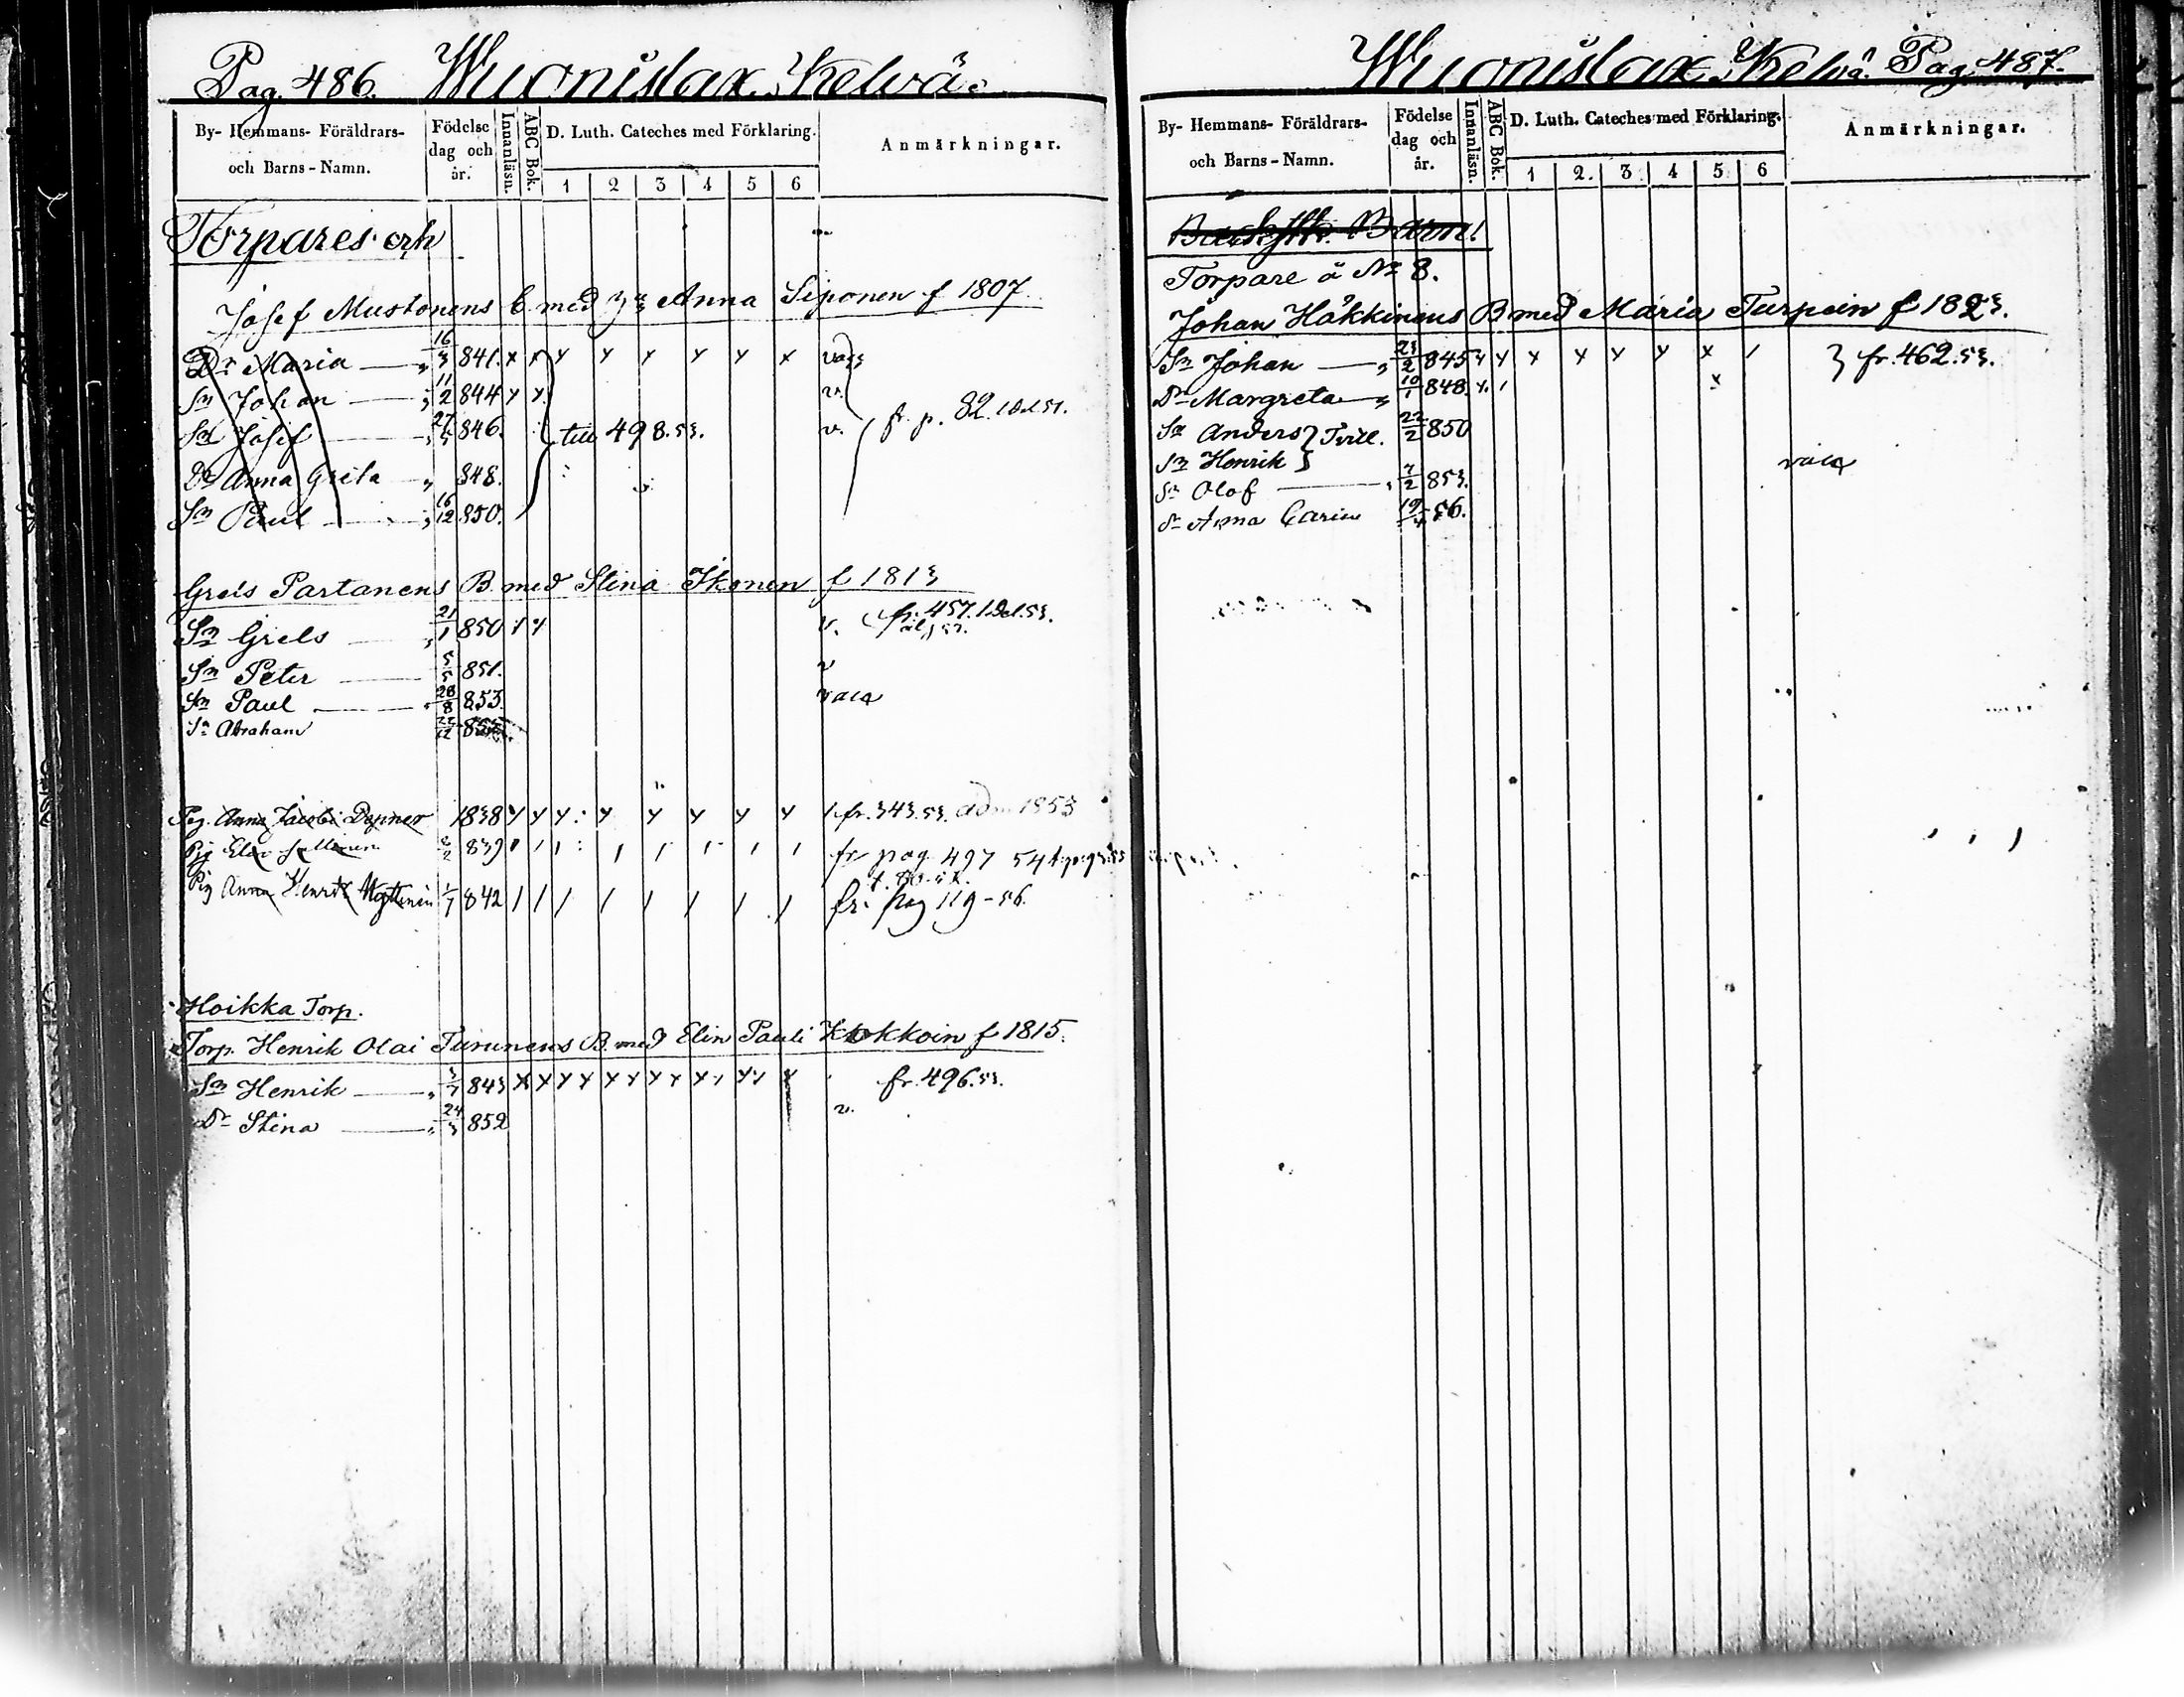 Pag. 486. Wuonislax Kelvä.
By- Hemmans- Föräldrars- och Barns-Namn.
Födelse dag och år.
Innanläsn.
ABC Bok.
D. Luth. Cateches med Förklaring.
1 2 3 4 5 6
Anmärkningar.
Torpares
Josef Mustonens B med Anna Siponen f 1807
Dr Maria 16/3 841. x x x x x x x x
Sn Johan 11/2 844 x x v.
Sn Josef 27/5 846. till 498.53. v. fr p. 82.
Dr Anna Greta 848.
Sn Paul 16/12 850.
Grels Partanens B. med Stina Ikonen f 1813
Sn Grels 21/1 850 v. fr. 457.1 Del.53.
Sn Peter 5/5 851. v
Sn Paul 28/8 853. vacc
Sn Abraham 22/12
Pig. Anna Jacobi 1838 fr. 343.53. adm 1853
Pig 2/2 839 fr pag 497 54
Pig Anna Henr. 1/7 842 fr. pag 119-56.
Hoikka Torp.
Torp. Henrik Olai Turunens B. med Elin Pauli Kokkoin f 1815.
Sn Henrik 3/7 843 fr. 496.53.
Dr Stina 24/3 852 v.
Wuonislax Kelvä. Pag. 487.
By- Hemmans- Föräldrars- och Barns-Namn.
Födelse dag och år.
Innanläsn.
ABC Bok.
D. Luth. Cateches med Förklaring.
1 2. 3 4 5 6
Anmärkningar.
Barn!
Torpare å No 8.
Johan Häkkinens B med Maria Turpein f 1823.
Sn Johan 23/2 845 x x x x x fr. 462.53.
Dr Margreta 10/1 848. x
Sn Anders } Tvill. 22/2 850
Sn Henrik }
Sn Olof 7/2 853. vacc
Dr Anna Carin 19/4 56.